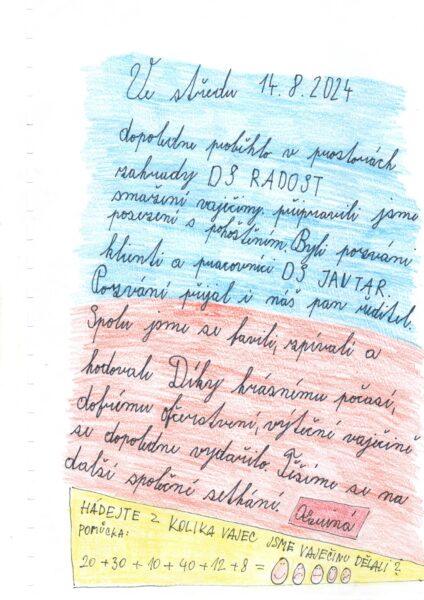 Ve středu 14.8.2024
dopoledne proběhlo v prostorách
zahrady DS RADOST
smažení vaječiny. připravili jsme
posezení s pohoštěním. Byli pozváni
klienti a pracovníci DS JANTAR.
Pozvání přijal i náš pan ředitel.
Spolu jsme se bavili, zpívali a
hodovali Díky krásnému počasí,
dobrému občerstvení, výtečné vaječině
se dopoledne vydařilo. Těšíme se na
další společné setkání.
HÁDEJTE Z KOLIKA VAJEC JSME VAJEČINU DĚLALI?
POMŮCKA:
20+30+10+40+12+8=